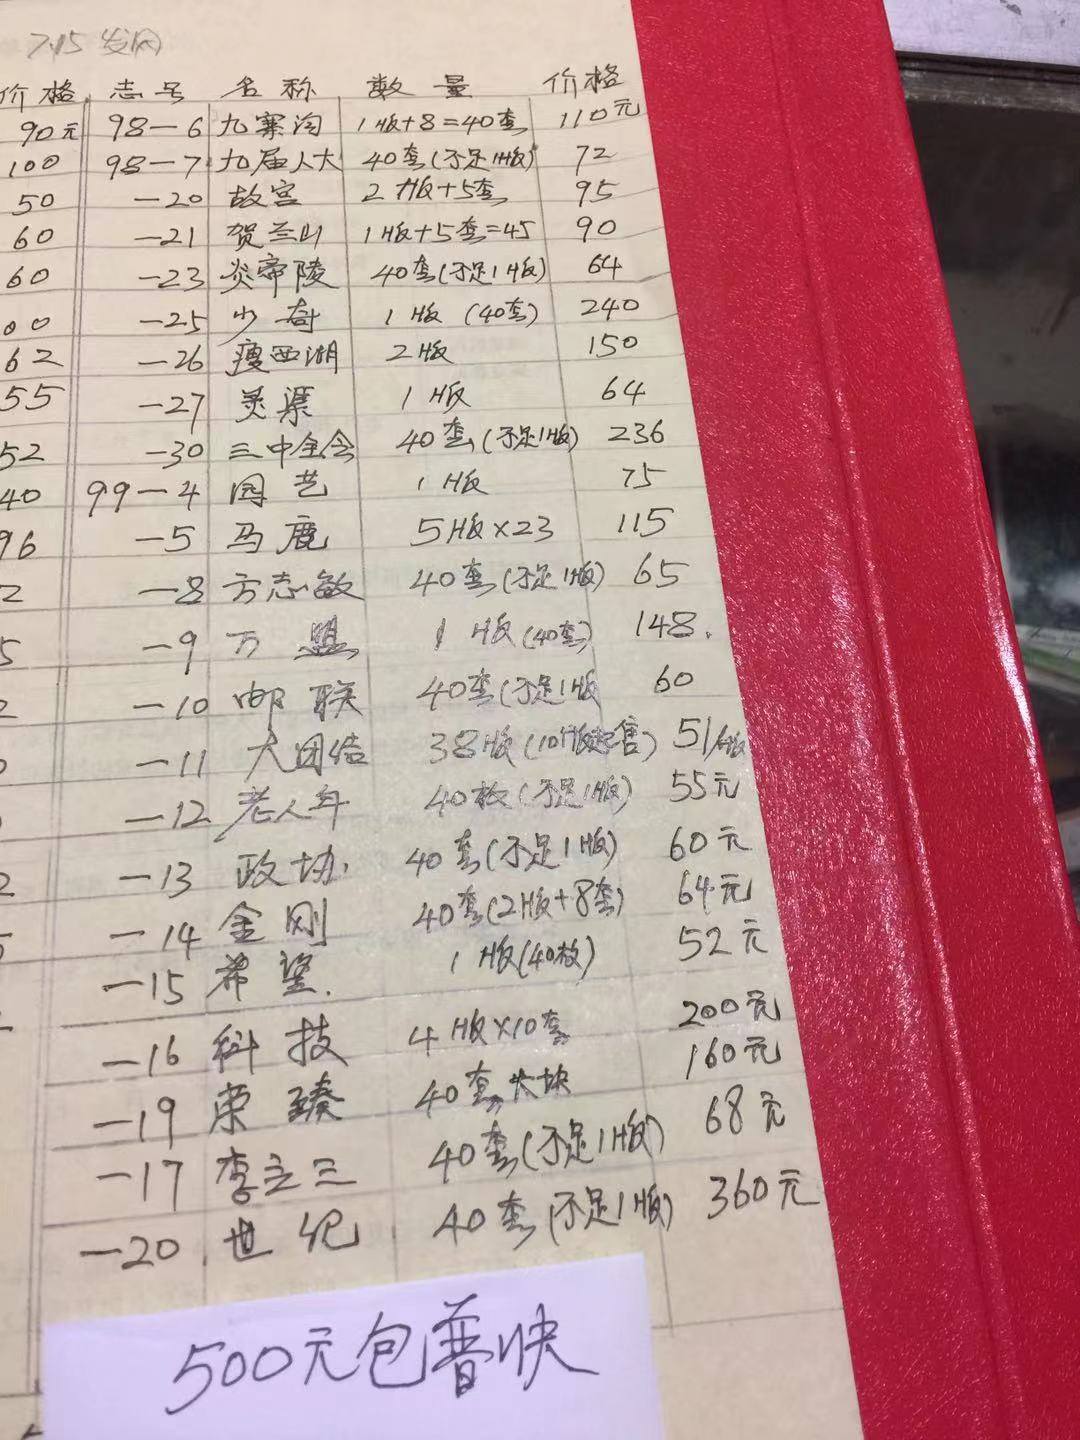 7.15发网
价格 志号 名称 数量 价格
90元 98-6 九寨沟 1版+8=40套 110元
100 98-7 九届人大 40套(不足1版) 72
50 -20 故宫 2版+5套 95
60 -21 贺兰山 1版+5套=45 90
60 -23 炎帝陵 40套(不足1版) 64
00 -25 少奇 1版(40套) 240
62 -26 瘦西湖 2版 150
55 -27 灵渠 1版 64
52 -30 三中全会 40套(不足1版) 236
40 99-4 园艺 1版 75
96 -5 马鹿 5版×23 115
2 -8 方志敏 40套(不足1版) 65
5 -9 万盟 1版(40套) 148.
2 -10 邮联 40套(不足1版 60
-11 大团结 38版(10版起售) 51/版
-12 老人年 40枚(不足1版) 55元
2 -13 政协. 40套(不足1版) 60元
-14 金刚 40套(2版+8套) 64元
-15 希望. 1版(40枚) 52元
-16 科技 4版×10套 200元
-19 荣臻 40套大块 160元
-17 李立三 40套(不足1版) 68元
-20 世纪 40套(不足1版) 360元
500元包普快